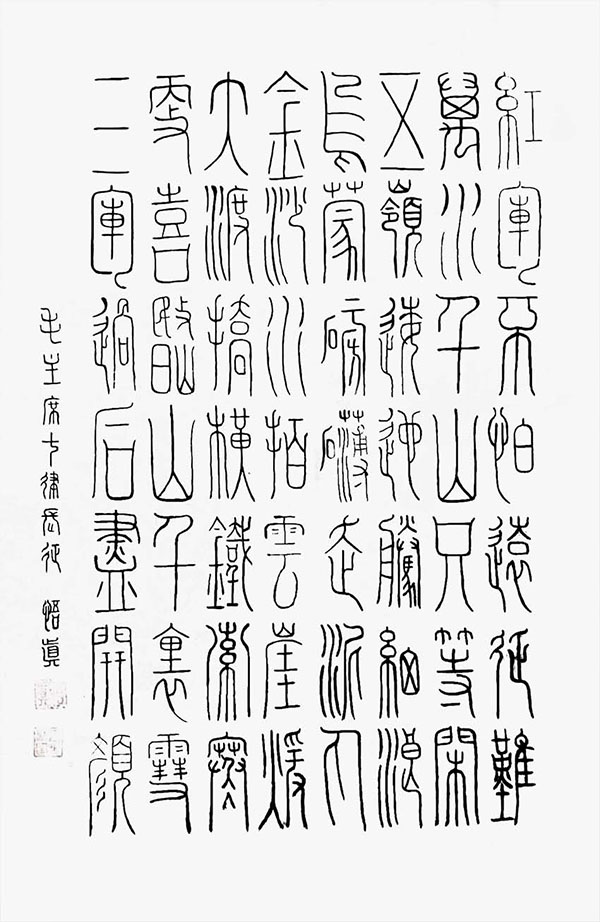 紅軍不怕遠征難
萬水千山只等閑
五嶺逶迤騰細浪
烏蒙磅礴走泥丸
金沙水拍雲崖煖
大渡橋橫鐵索寒
更喜岷山千裏雪
三軍過后盡開顏
毛主席七律長征 悟眞